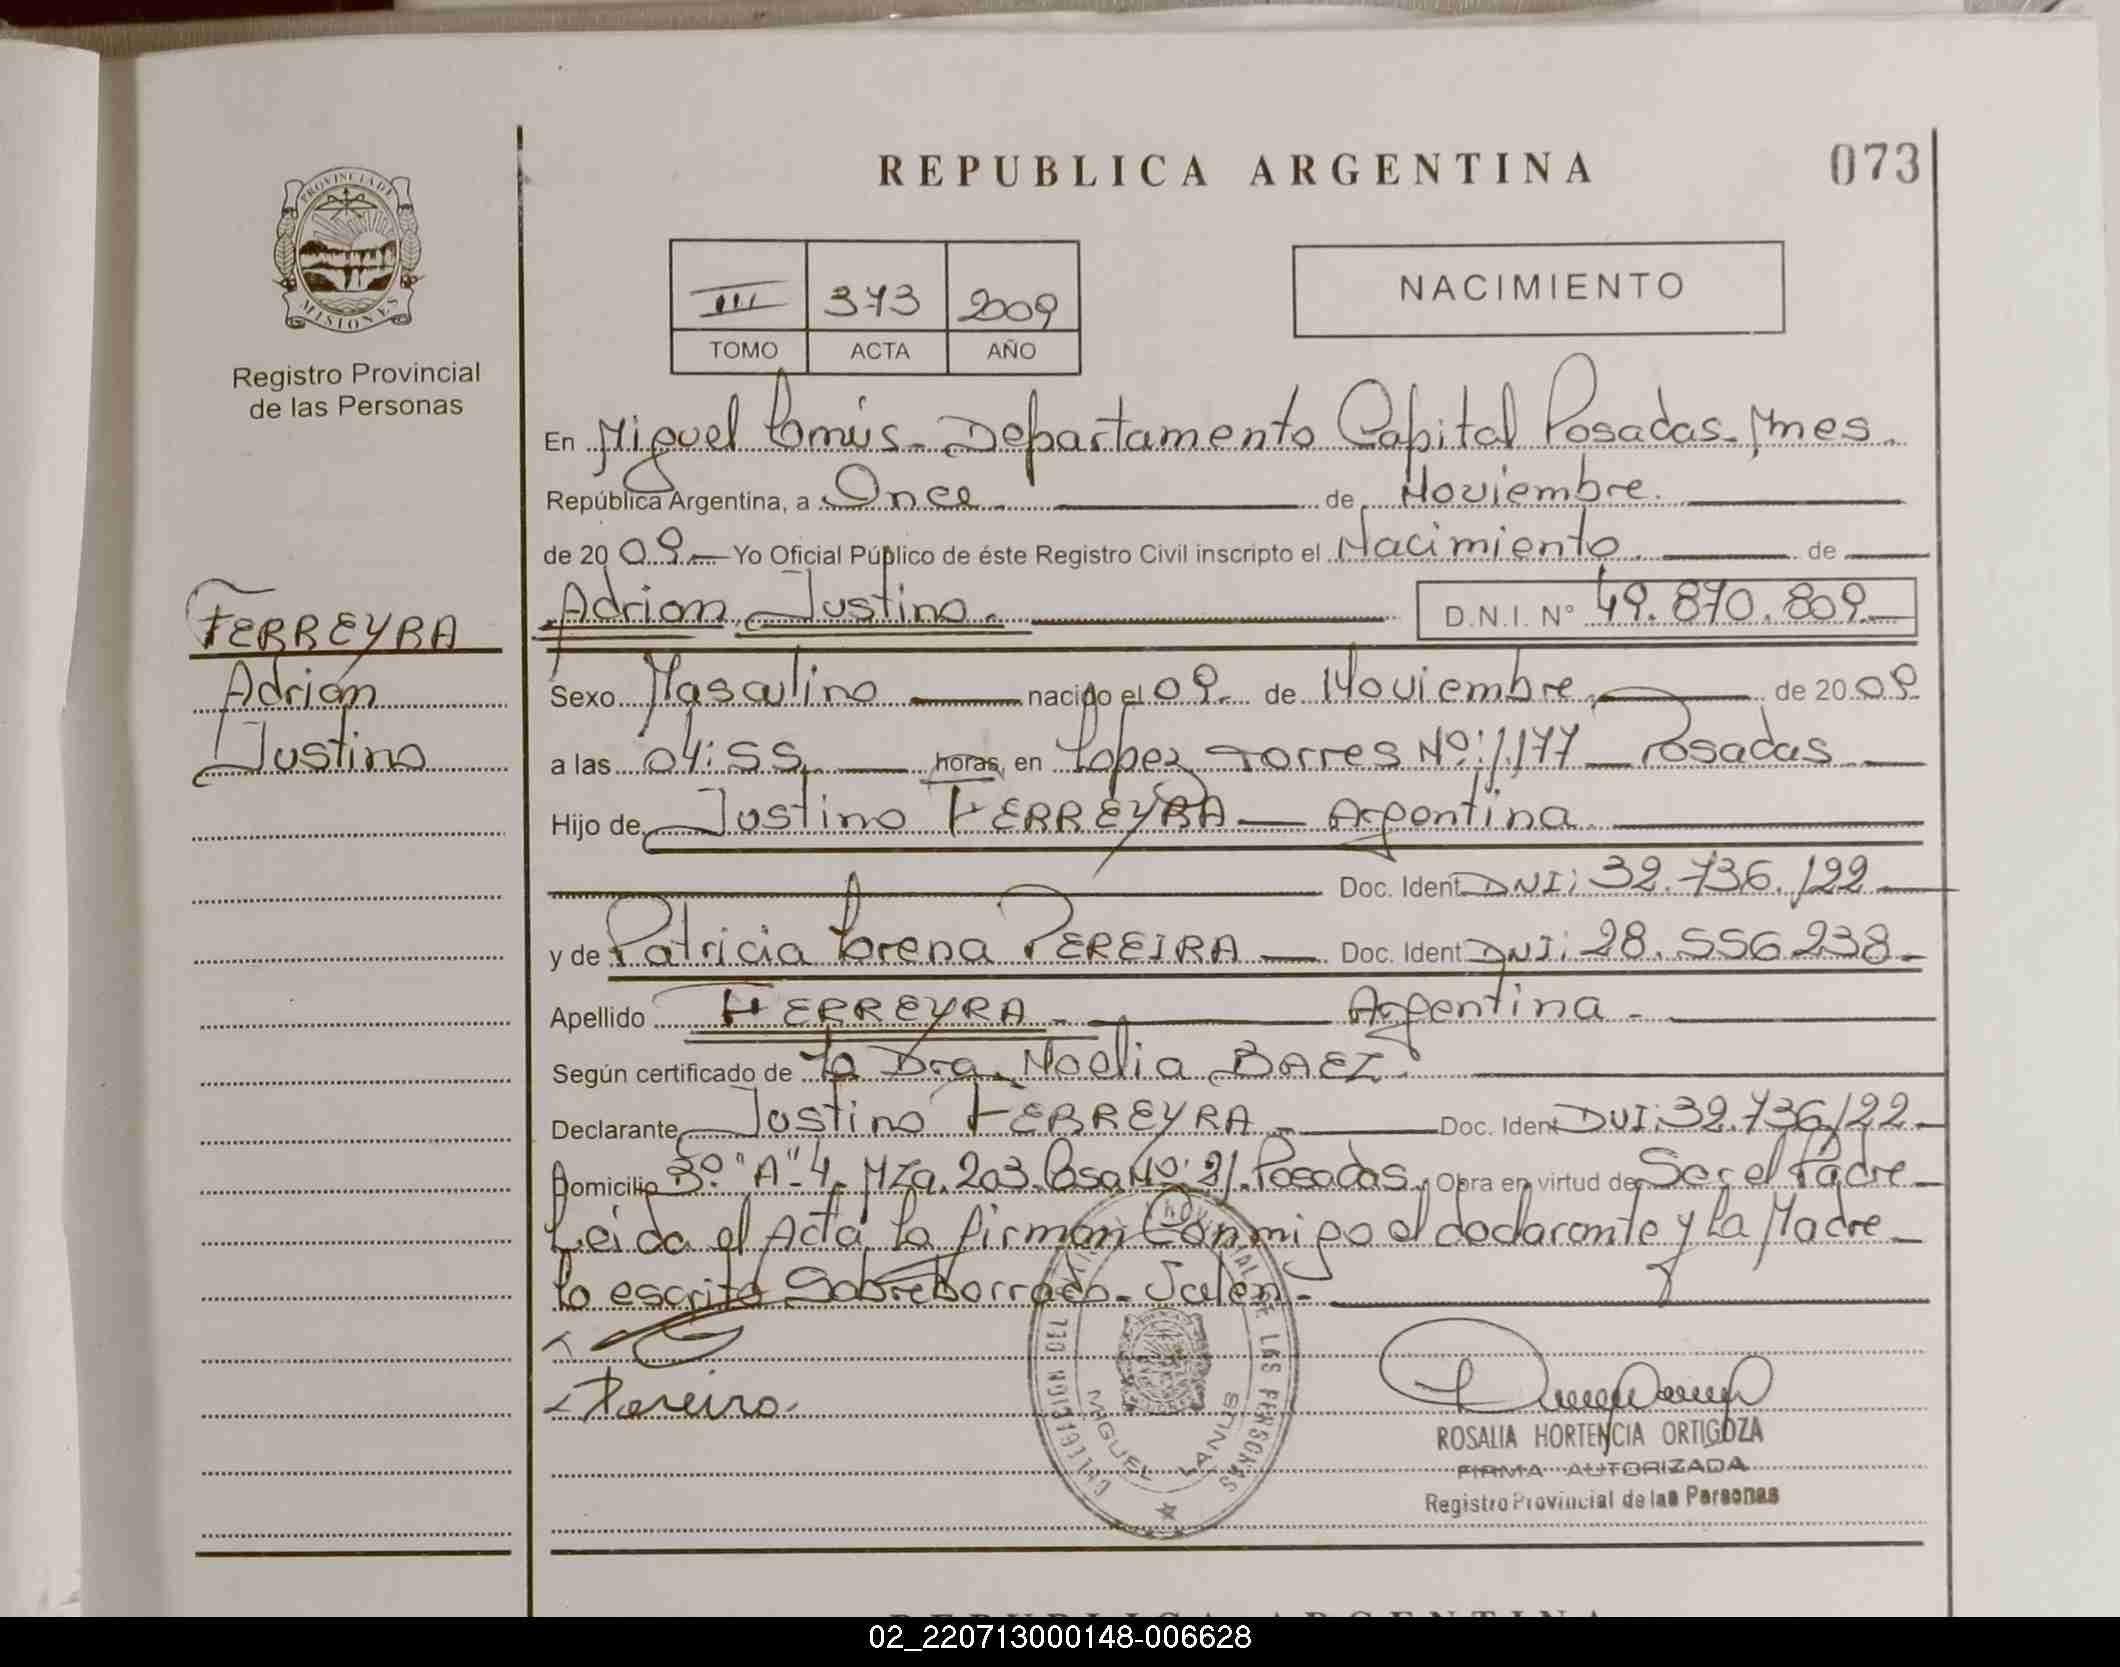 REPUBLICA ARGENTINA
073
PROVINCIA DE
MISIONES
Registro Provincial
de las Personas
III 373 2009
TOMO ACTA AÑO
NACIMIENTO
En Miguel Lanús - Departamento Capital Posadas - Mnes -
República Argentina, a Once de Noviembre.
de 2009 Yo Oficial Público de éste Registro Civil inscripto el Nacimiento de
Adrian Justino.
D.N.I. N° 49.870.809.
FERREYRA
Adrian
Justino
Sexo Masculino nacido el 09 de Noviembre de 2009
a las 04:55 horas, en Lopez Torres Nº: 1.177 Posadas
Hijo de Justino FERREYRA - Argentina
Doc. Ident. DNI: 32.736.122
y de Patricia Lorena PEREIRA - Doc. Ident DNI: 28.556.238 -
Apellido FERREYRA - Argentina -
Según certificado de La Dra. Noelia BAEZ.
Declarante Justino FERREYRA - Doc. Ident DNI: 32.736.122 -
Domicilio 3º "A"- 4 - Mza. 203. Casa Nº: 21. Posadas. Obra en virtud de Ser el Padre -
Leida el Acta, La firman Conmigo el declarante y La Madre -
Lo escrito Sobreborrado - Valen -
Pereira.
REGISTRO PROVINCIAL DE LAS PERSONAS
MIGUEL LANUS
ROSALIA HORTENCIA ORTIGOZA
FIRMA AUTORIZADA
Registro Provincial de las Personas
02_220713000148-006628